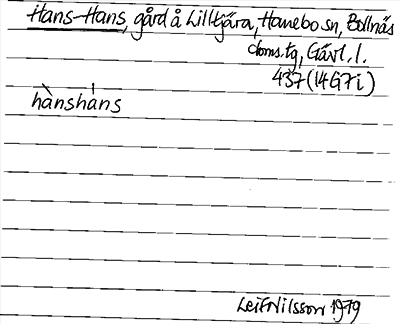 Hans-Hans, gård å Lilltjära, Hanebo sn, Bollnäs
doms.tg, Gävl. l.
437 (14G7i)
hànshàns
Leif Nilsson 1979